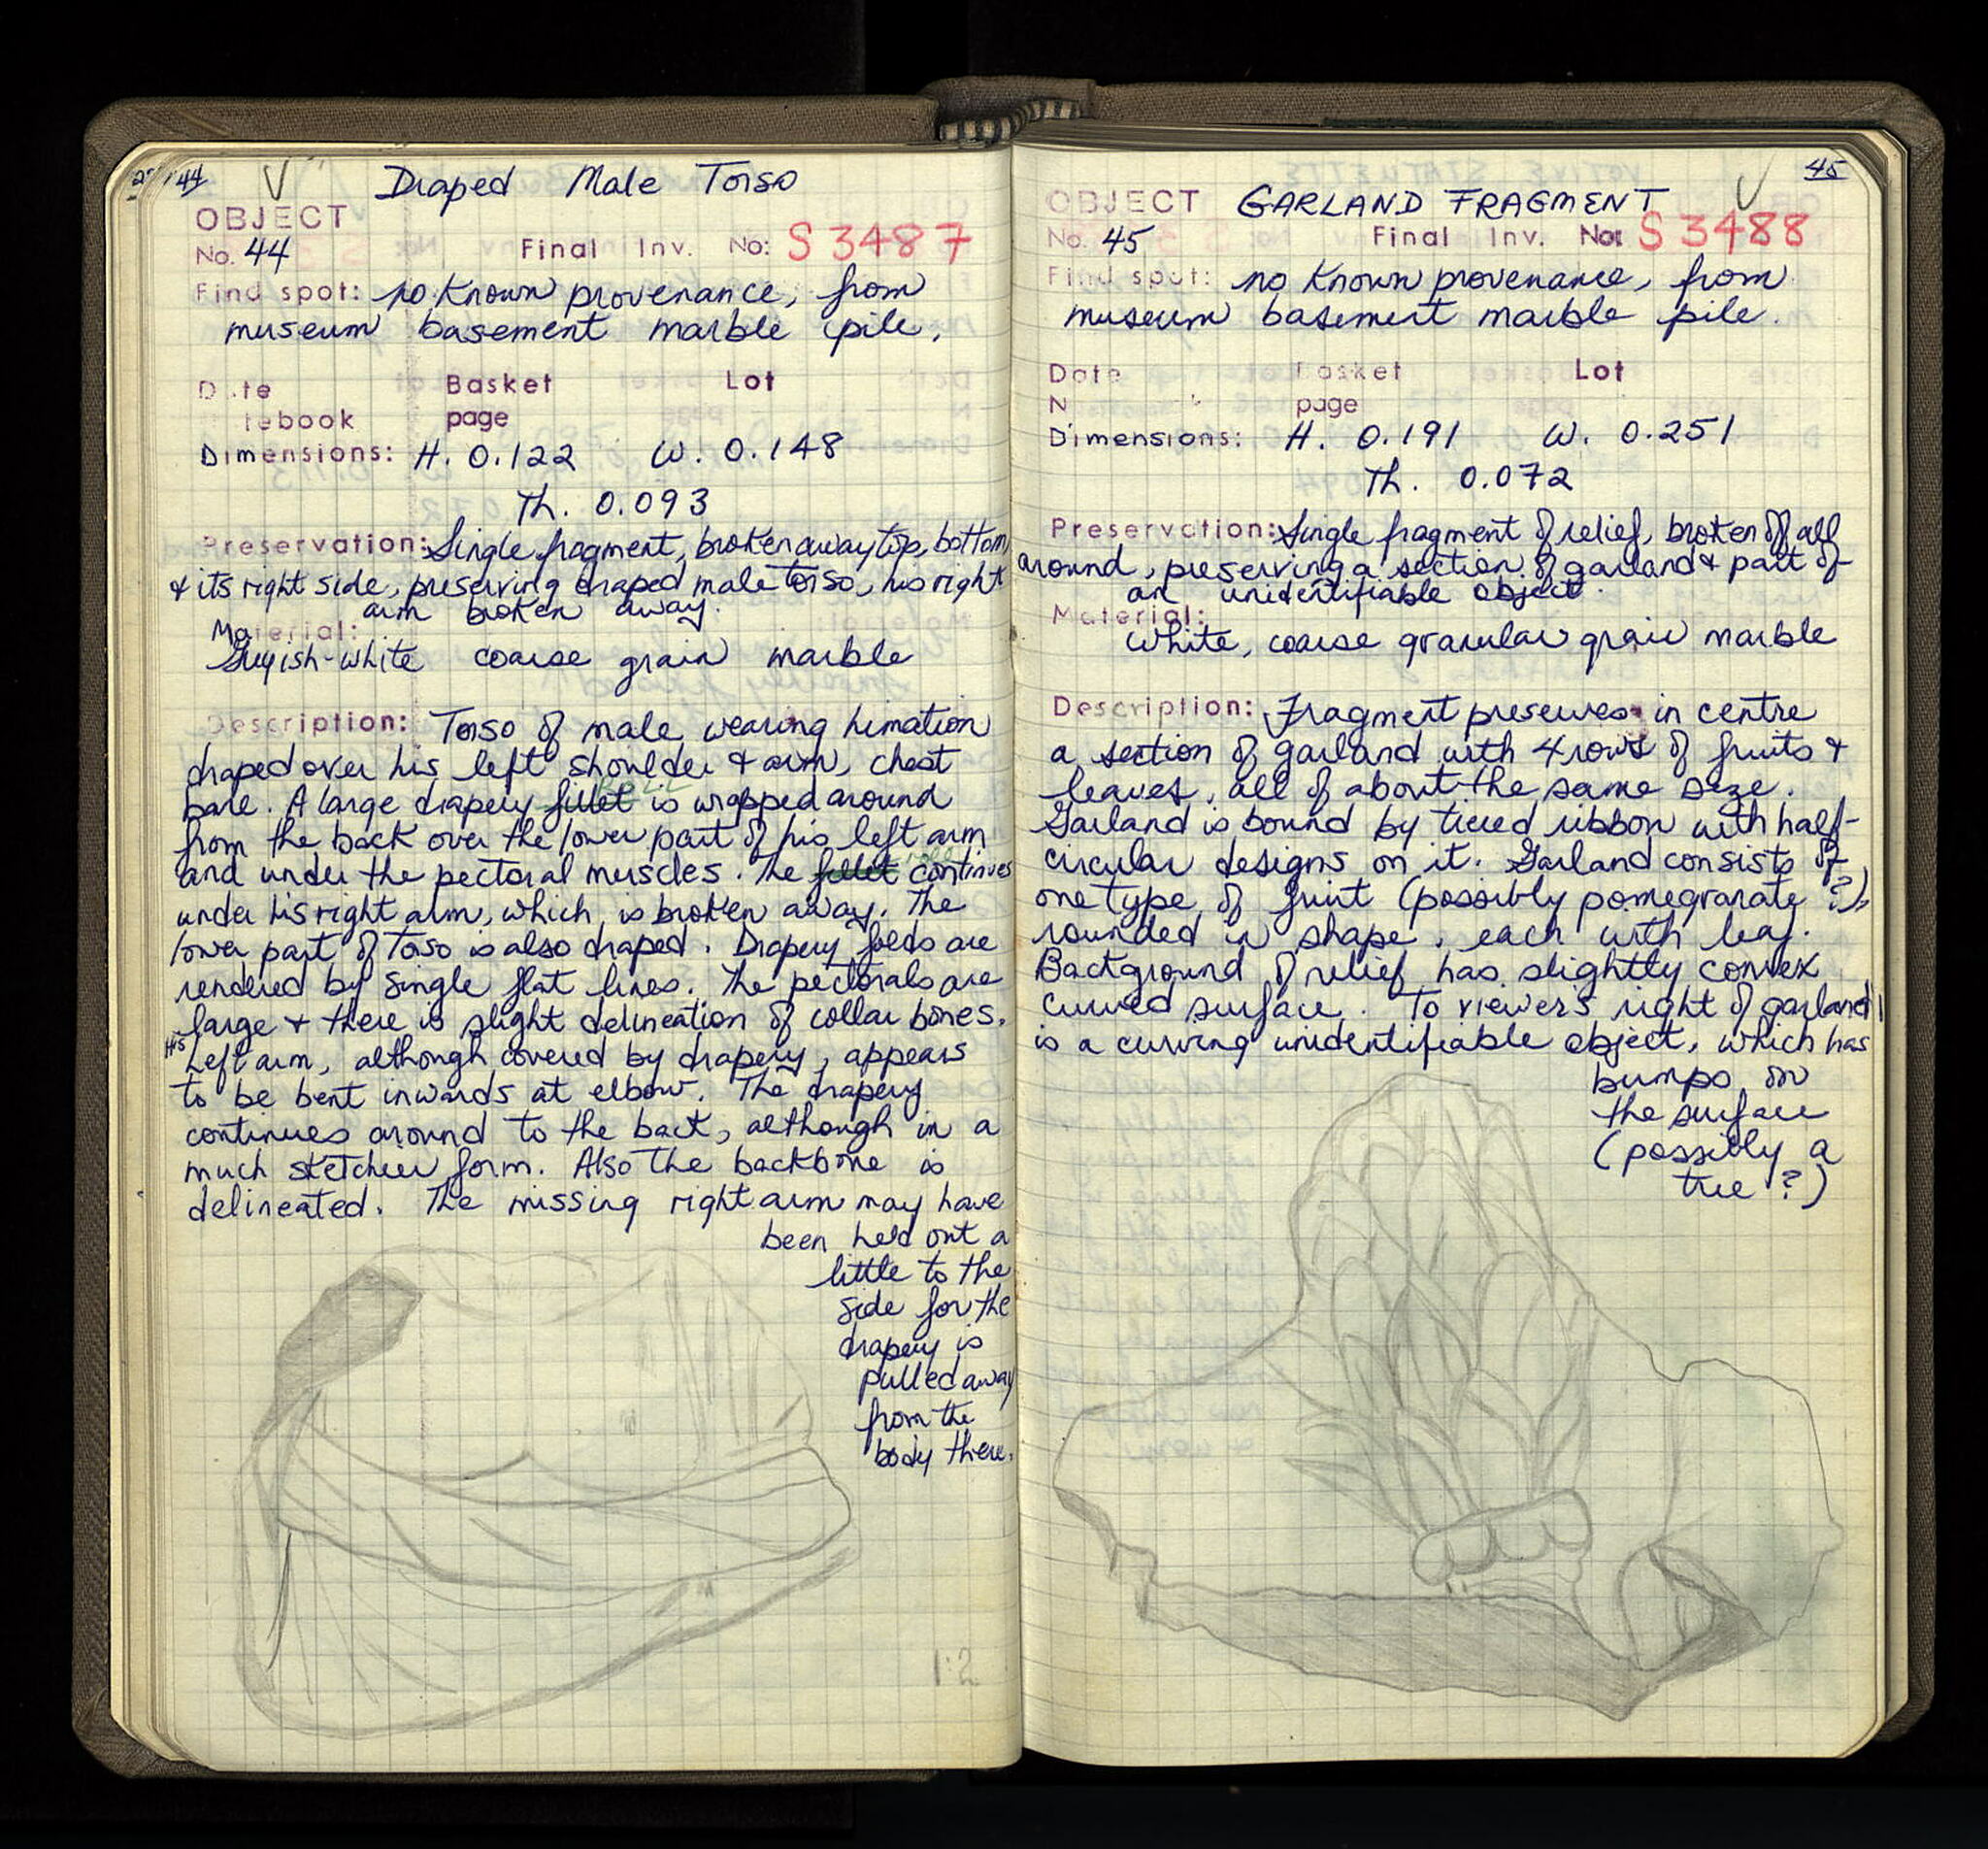 44 Draped Male Torso
OBJECT
No. 44 Final Inv. No: S 3487
Find spot: no known provenance, from
museum basement marble pile.
Date Basket Lot
tebook page
Dimensions: H. 0.122 W. 0.148
Th. 0.093
Preservation: Single fragment, broken away top, bottom
& its right side, preserving draped male torso, his right
arm broken away.
Material:
Greyish-white coarse grain marble
Description: Torso of male wearing himation
draped over his left shoulder & arm, chest
roll
bare. A large drapery fillet is wrapped around
from the back over the lower part of his left arm
roll
and under the pectoral muscles. The fillet continues
under his right arm, which is broken away. The
lower part of torso is also draped. Drapery folds are
rendered by single flat lines. The pectorals are
large & there is slight delineation of collar bones.
His Left arm, although covered by drapery, appears
to be bent inwards at elbow. The drapery
continues around to the back, although in a
much sketchier form. Also the backbone is
delineated. The missing right arm may have
been held out a
little to the
side for the
drapery is
pulled away
from the
body there.
1:2
45
OBJECT GARLAND FRAGMENT
No. 45 Final Inv. No: S 3488
Find spot: no known provenance, from
museum basement marble pile.
Date Basket Lot
N page
Dimensions: H. 0.191 W. 0.251
Th. 0.072
Preservation: Single fragment of relief, broken off all
around, preserving a section of garland & part of
an unidentifiable object.
Material:
White, coarse granular grain marble
Description: Fragment preserves in centre
a section of garland with 4 rows of fruits &
leaves, all of about the same size.
Garland is bound by tiered ribbon with half-
circular designs on it. Garland consists of
one type of fruit (possibly pomegranate ?),
rounded in shape, each with leaf.
Background of relief has slightly convex
curved surface. To viewer's right of garland
is a curving unidentifiable object, which has
bumps on
the surface
(possibly a
tree ?)